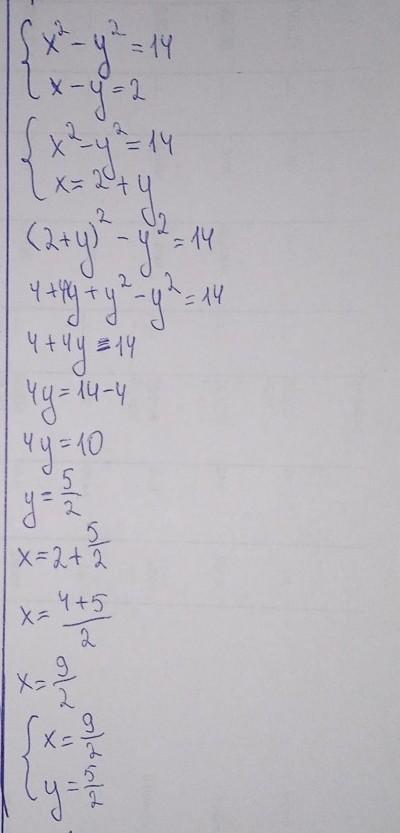 { x² - y² = 14
x - y = 2
{ x² - y² = 14
x = 2 + y
(2+y)² - y² = 14
4 + 4y + y² - y² = 14
4 + 4y = 14
4y = 14 - 4
4y = 10
y = 5/2
x = 2 + 5/2
x = (4+5)/2
x = 9/2
{ x = 9/2
y = 5/2